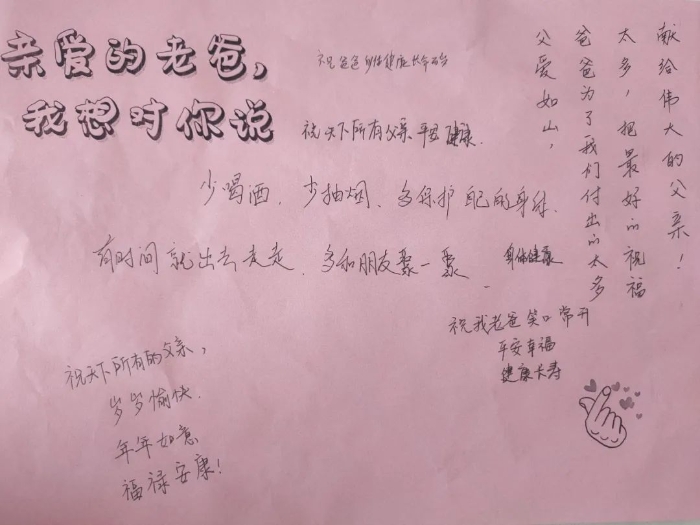 亲爱的老爸，
我想对你说
祝爸爸身体健康长命百岁
祝天下所有父亲平安健康.
少喝酒、少抽烟、多保护自己的身体.
有时间就出去走走、多和朋友聚一聚.
身体健康
父爱如山，
爸爸为了我们付出的太多
太多，把最好的祝福
献给伟大的父亲！
祝我老爸笑口常开
平安幸福
健康长寿
祝天下所有的父亲，
岁岁愉快.
年年如意
福禄安康！